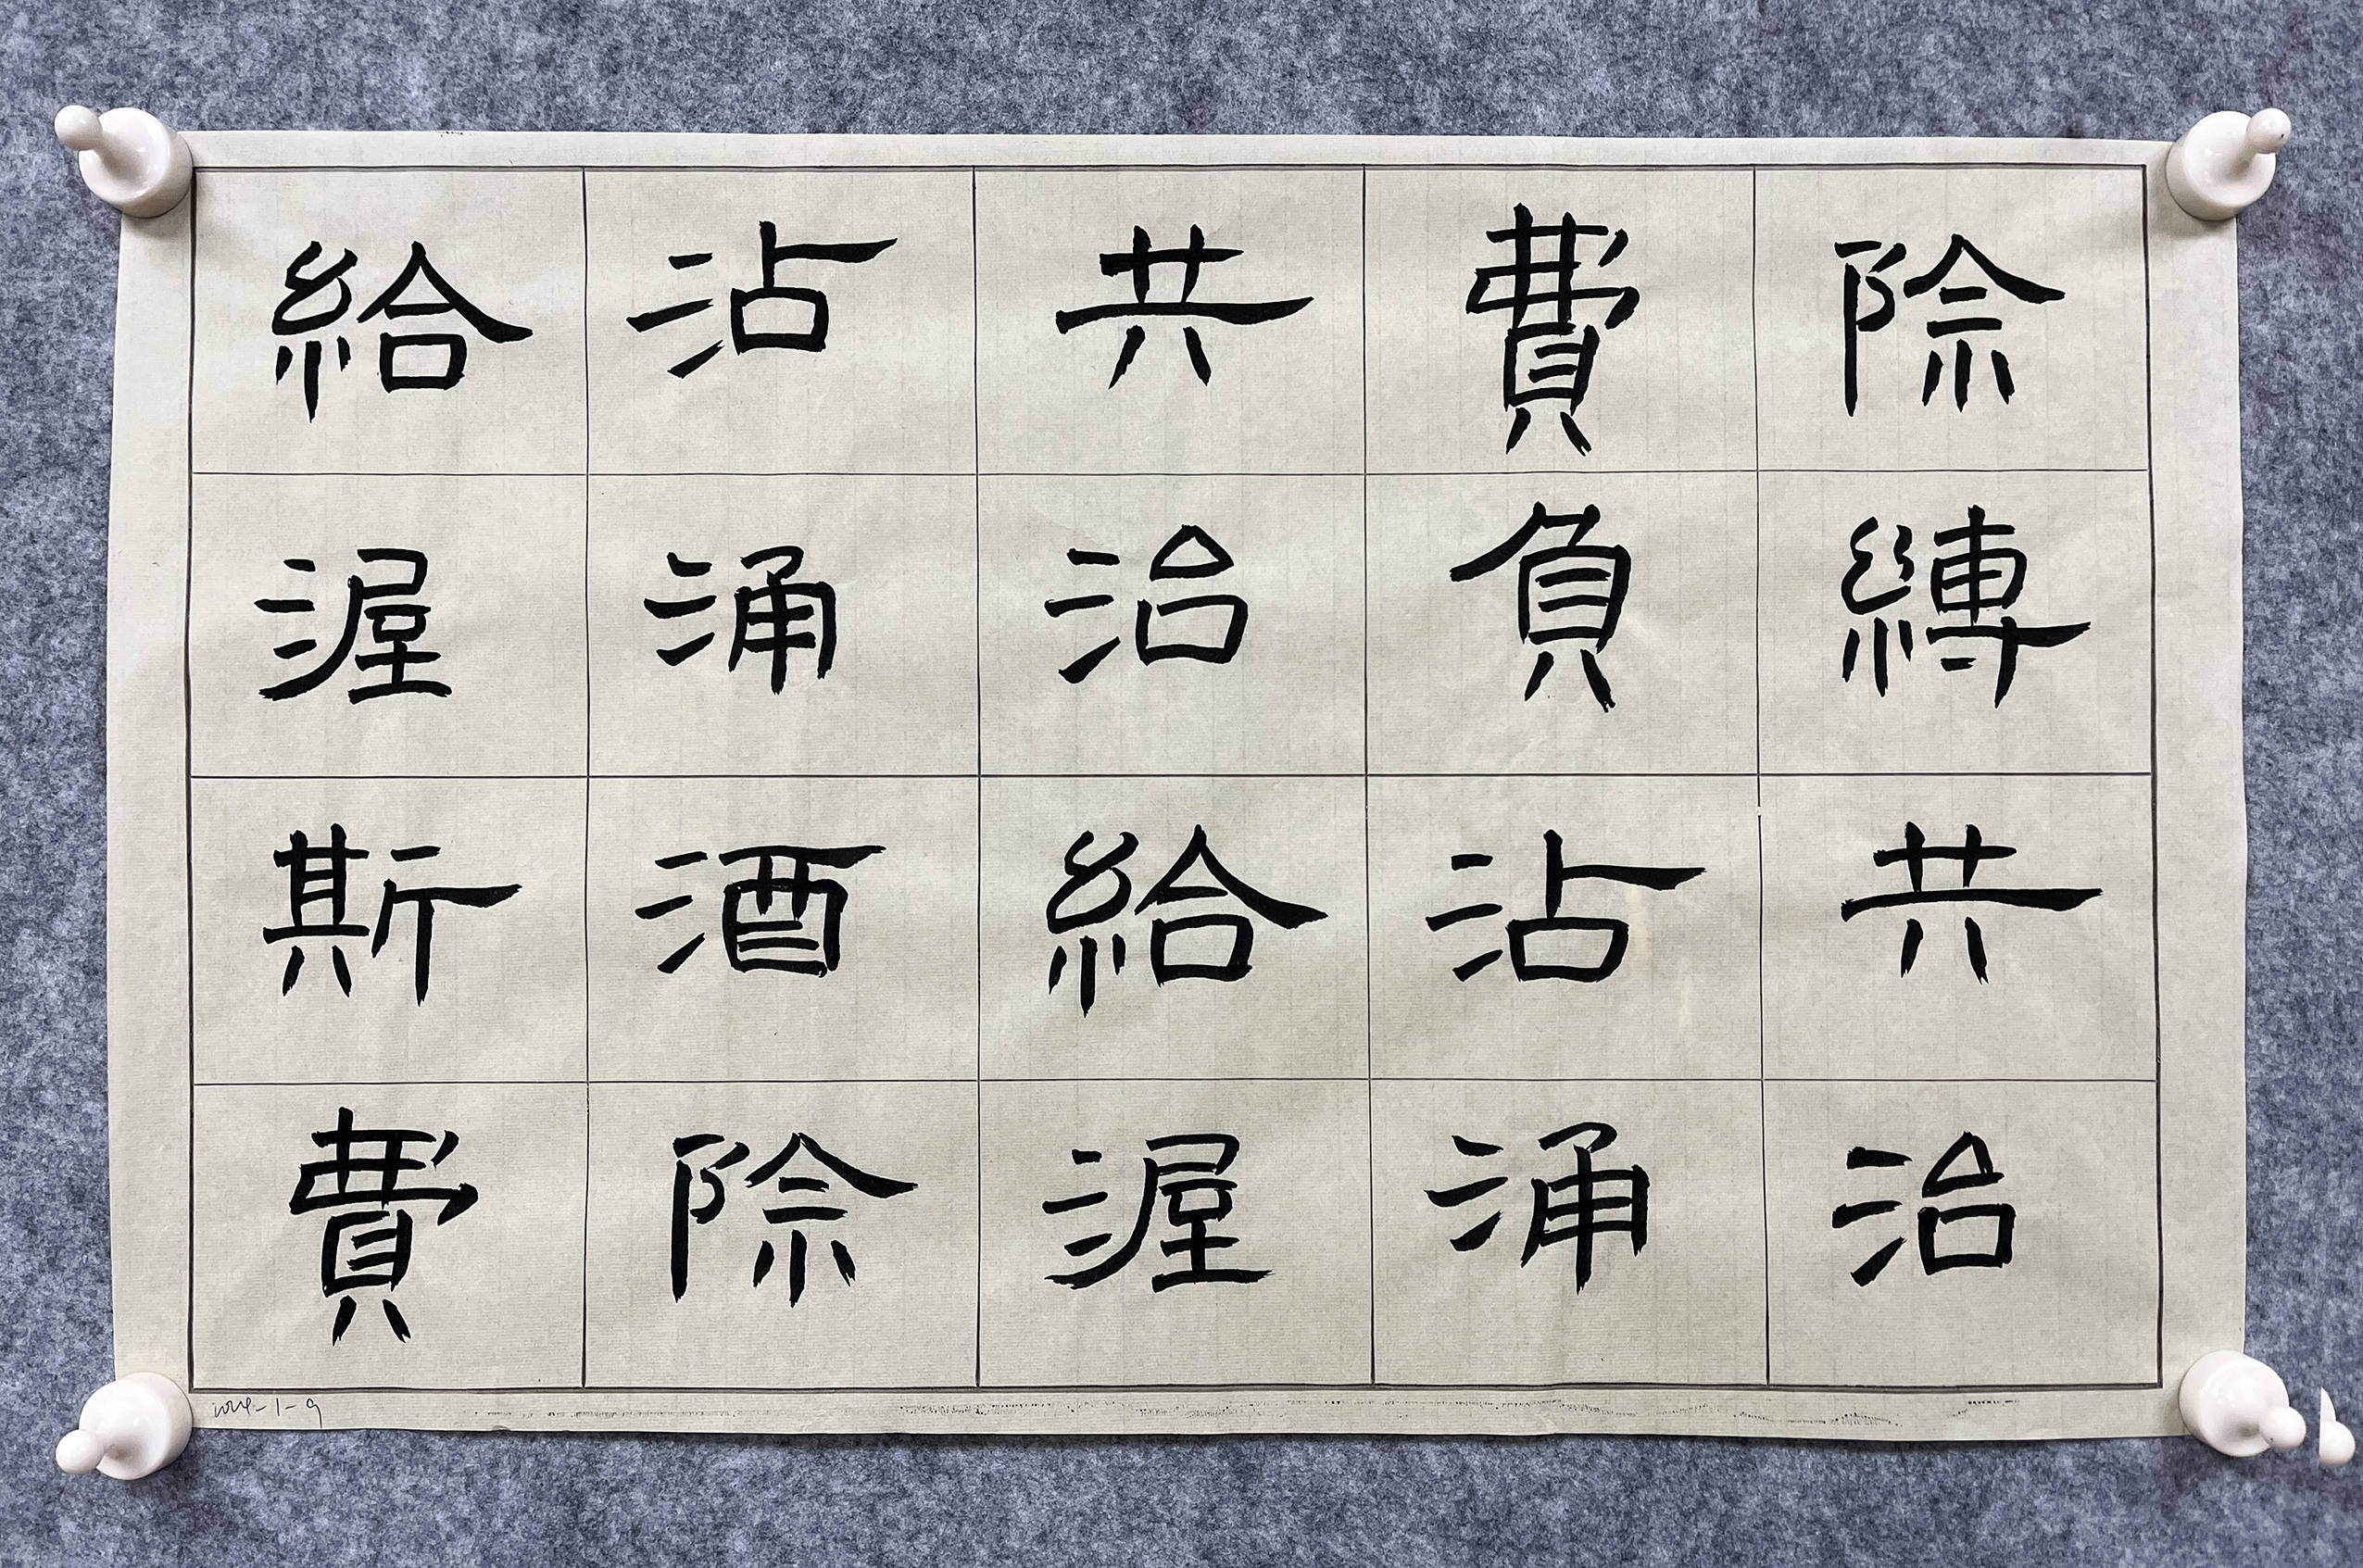 除縛共治
費負沾涌
共治給渥
沾涌酒除
給渥斯費
2024-1-9